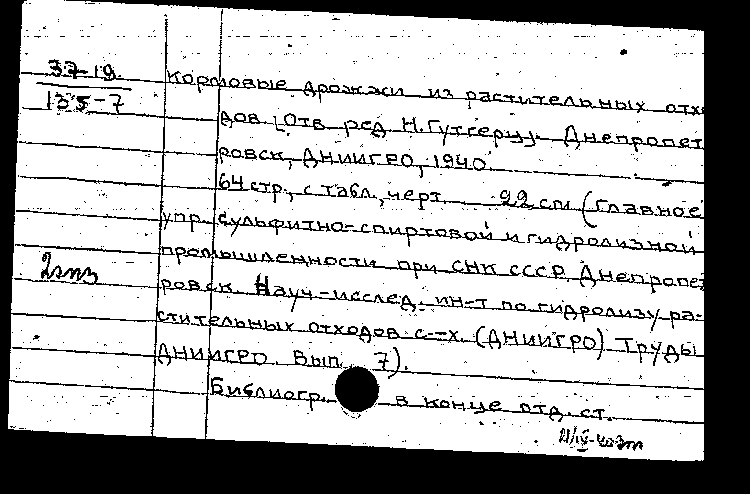 37-19
135-7
Кормовые дрожжи из растительных отхо
дов. [Отв. ред. Н. Гутгерц]. Днепропет
ровск, ДНИИГРО, 1940.
64 стр., с табл., черт. 22 см (Главное
упр. сульфитно-спиртовой и гидролизной
промышленности при СНК СССР. Днепропет
ровск. Науч.-исслед. ин-т по гидролизу ра-
стительных отходов с.-х. (ДНИИГРО) Труды
ДНИИГРО. Вып. 7).
2 экз
Библиогр. в конце отд. ст.